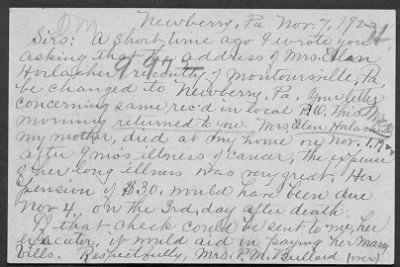 Newberry, Pa Nov. 7, 1922
Sirs: A short time ago I wrote you
asking that the address of Mrs. Ellen
Horlacher recently of Montoursville, Pa.
be changed to Newberry, Pa. Your letter
concerning same rec'd in local P.O. this
morning returned to you. Mrs. Ellen Horlacher
my mother, died at my home on Nov. 1,
after 9 mos. illness of cancer, the expense
of her long illness was very great. Her
pension of $30. would have been due
Nov 4, on the 3rd, day after death.
If that check could be sent to me, her
executor, it would aid in paying her many
bills. Respectfully, Mrs. P. M. Bullard (over)